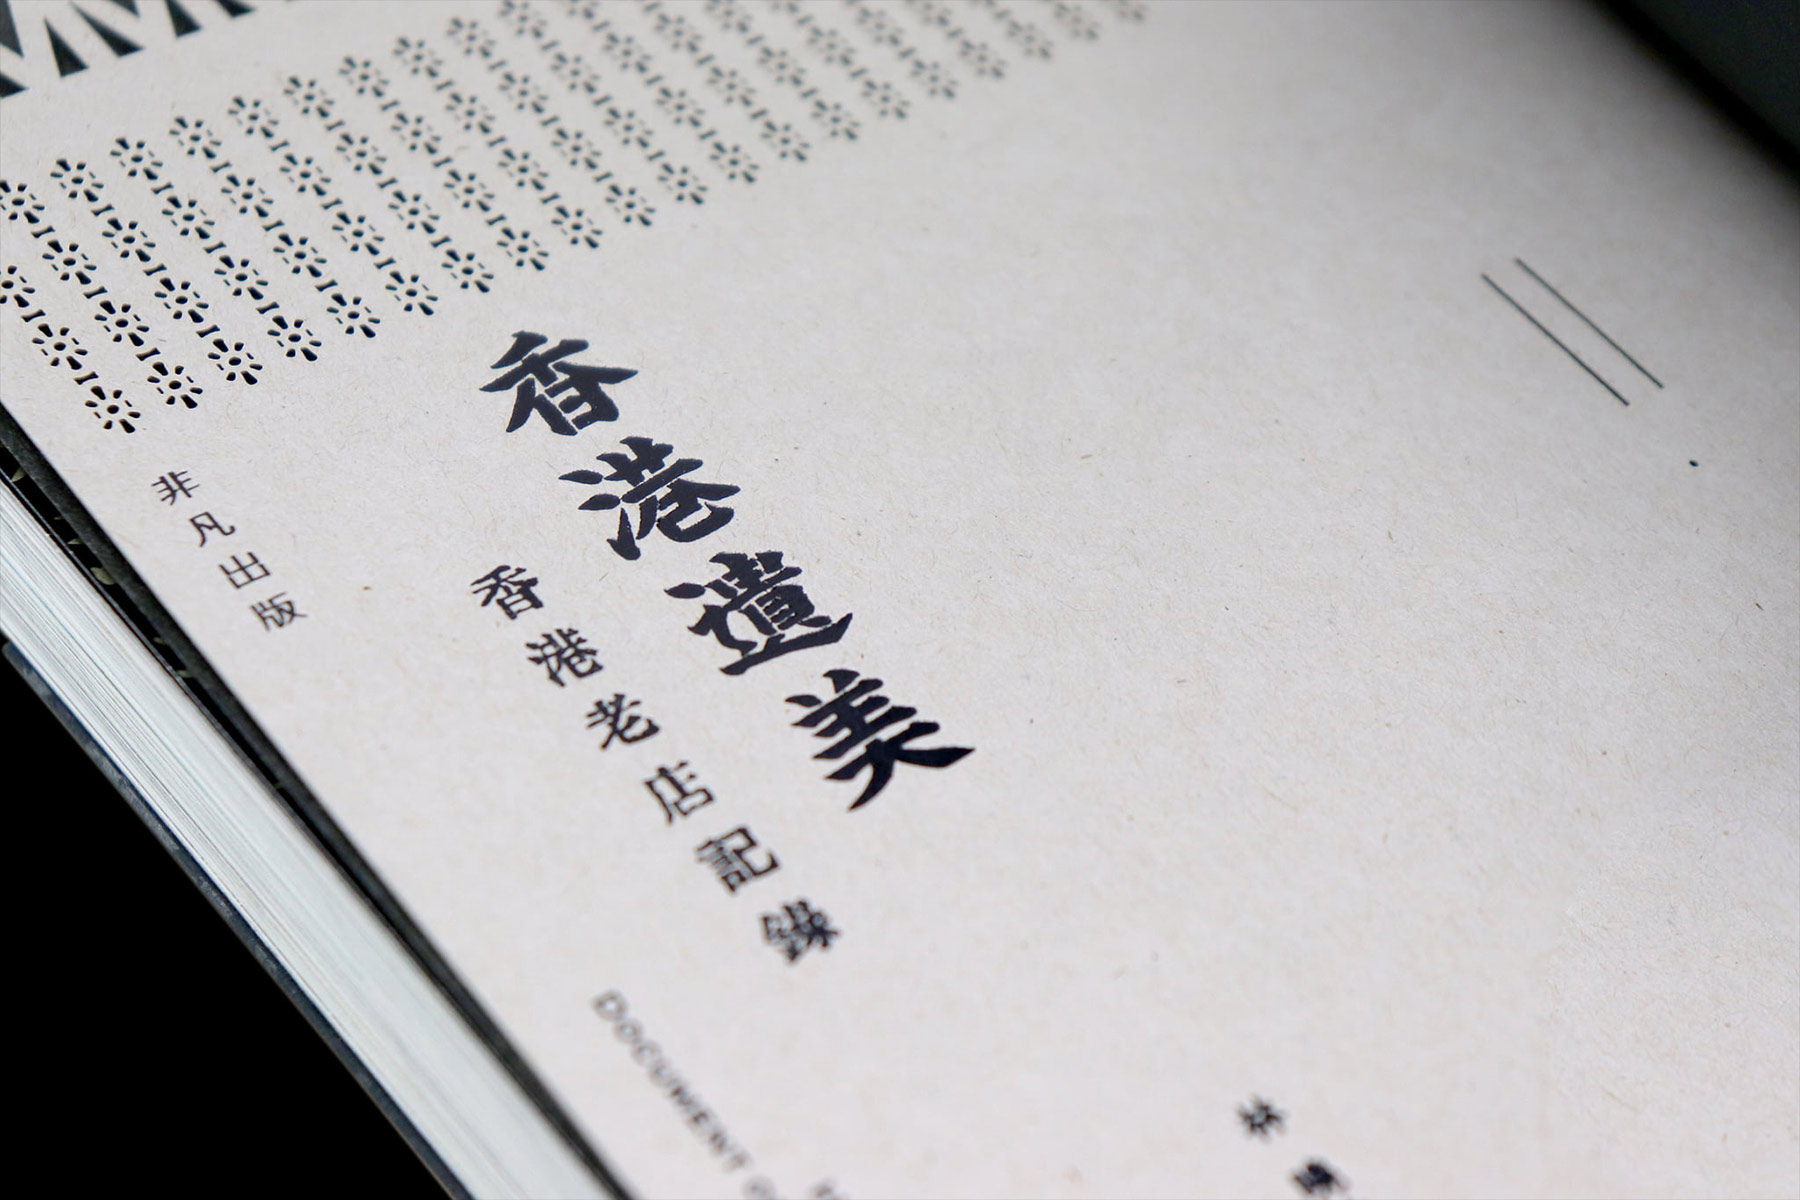 香港遺美
香港老店記錄
DOCUMENT
非凡出版